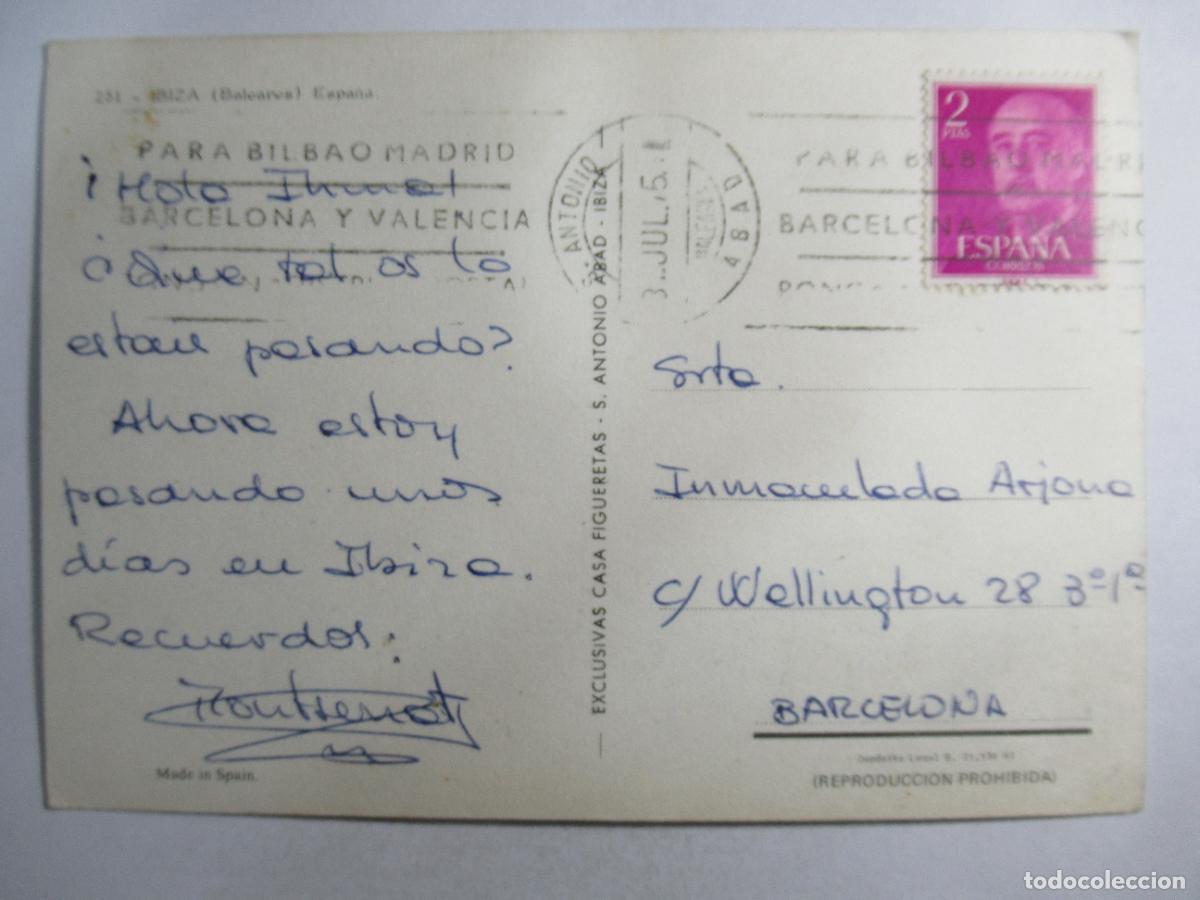 231 - IBIZA (Baleares) España.
PARA BILBAO MADRID
BARCELONA Y VALENCIA
¡Hola
¿Que tal os lo
estais pasando?
Ahora estoy
pasando unos
días en Ibiza.
Recuerdos:
Montserrat
Made in Spain.
EXCLUSIVAS CASA FIGUERETAS - S. ANTONIO ABAD - IBIZA
ANTONIO ABAD
BALEARES
JUL.75
PARA BILBAO MADRI
BARCELONA Y VALENC
2
PTAS
ESPAÑA
CORREOS
Srta.
Inmaculada Arjona
c/ Wellington 28 3º 1ª
BARCELONA
Depósito Legal B.
(REPRODUCCION PROHIBIDA)
todocoleccion